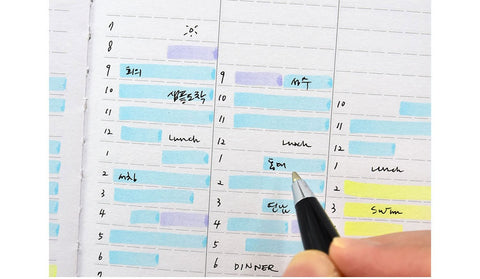 7
8
9 회의
10 샘플도착
11
12 Lunch
1
2 서창
3
4
5
7
9 성수
10
11
12 Lunch
1
2
3
4
5
6 DINNER
10
11
12
1 Lunch
2
3 Swim